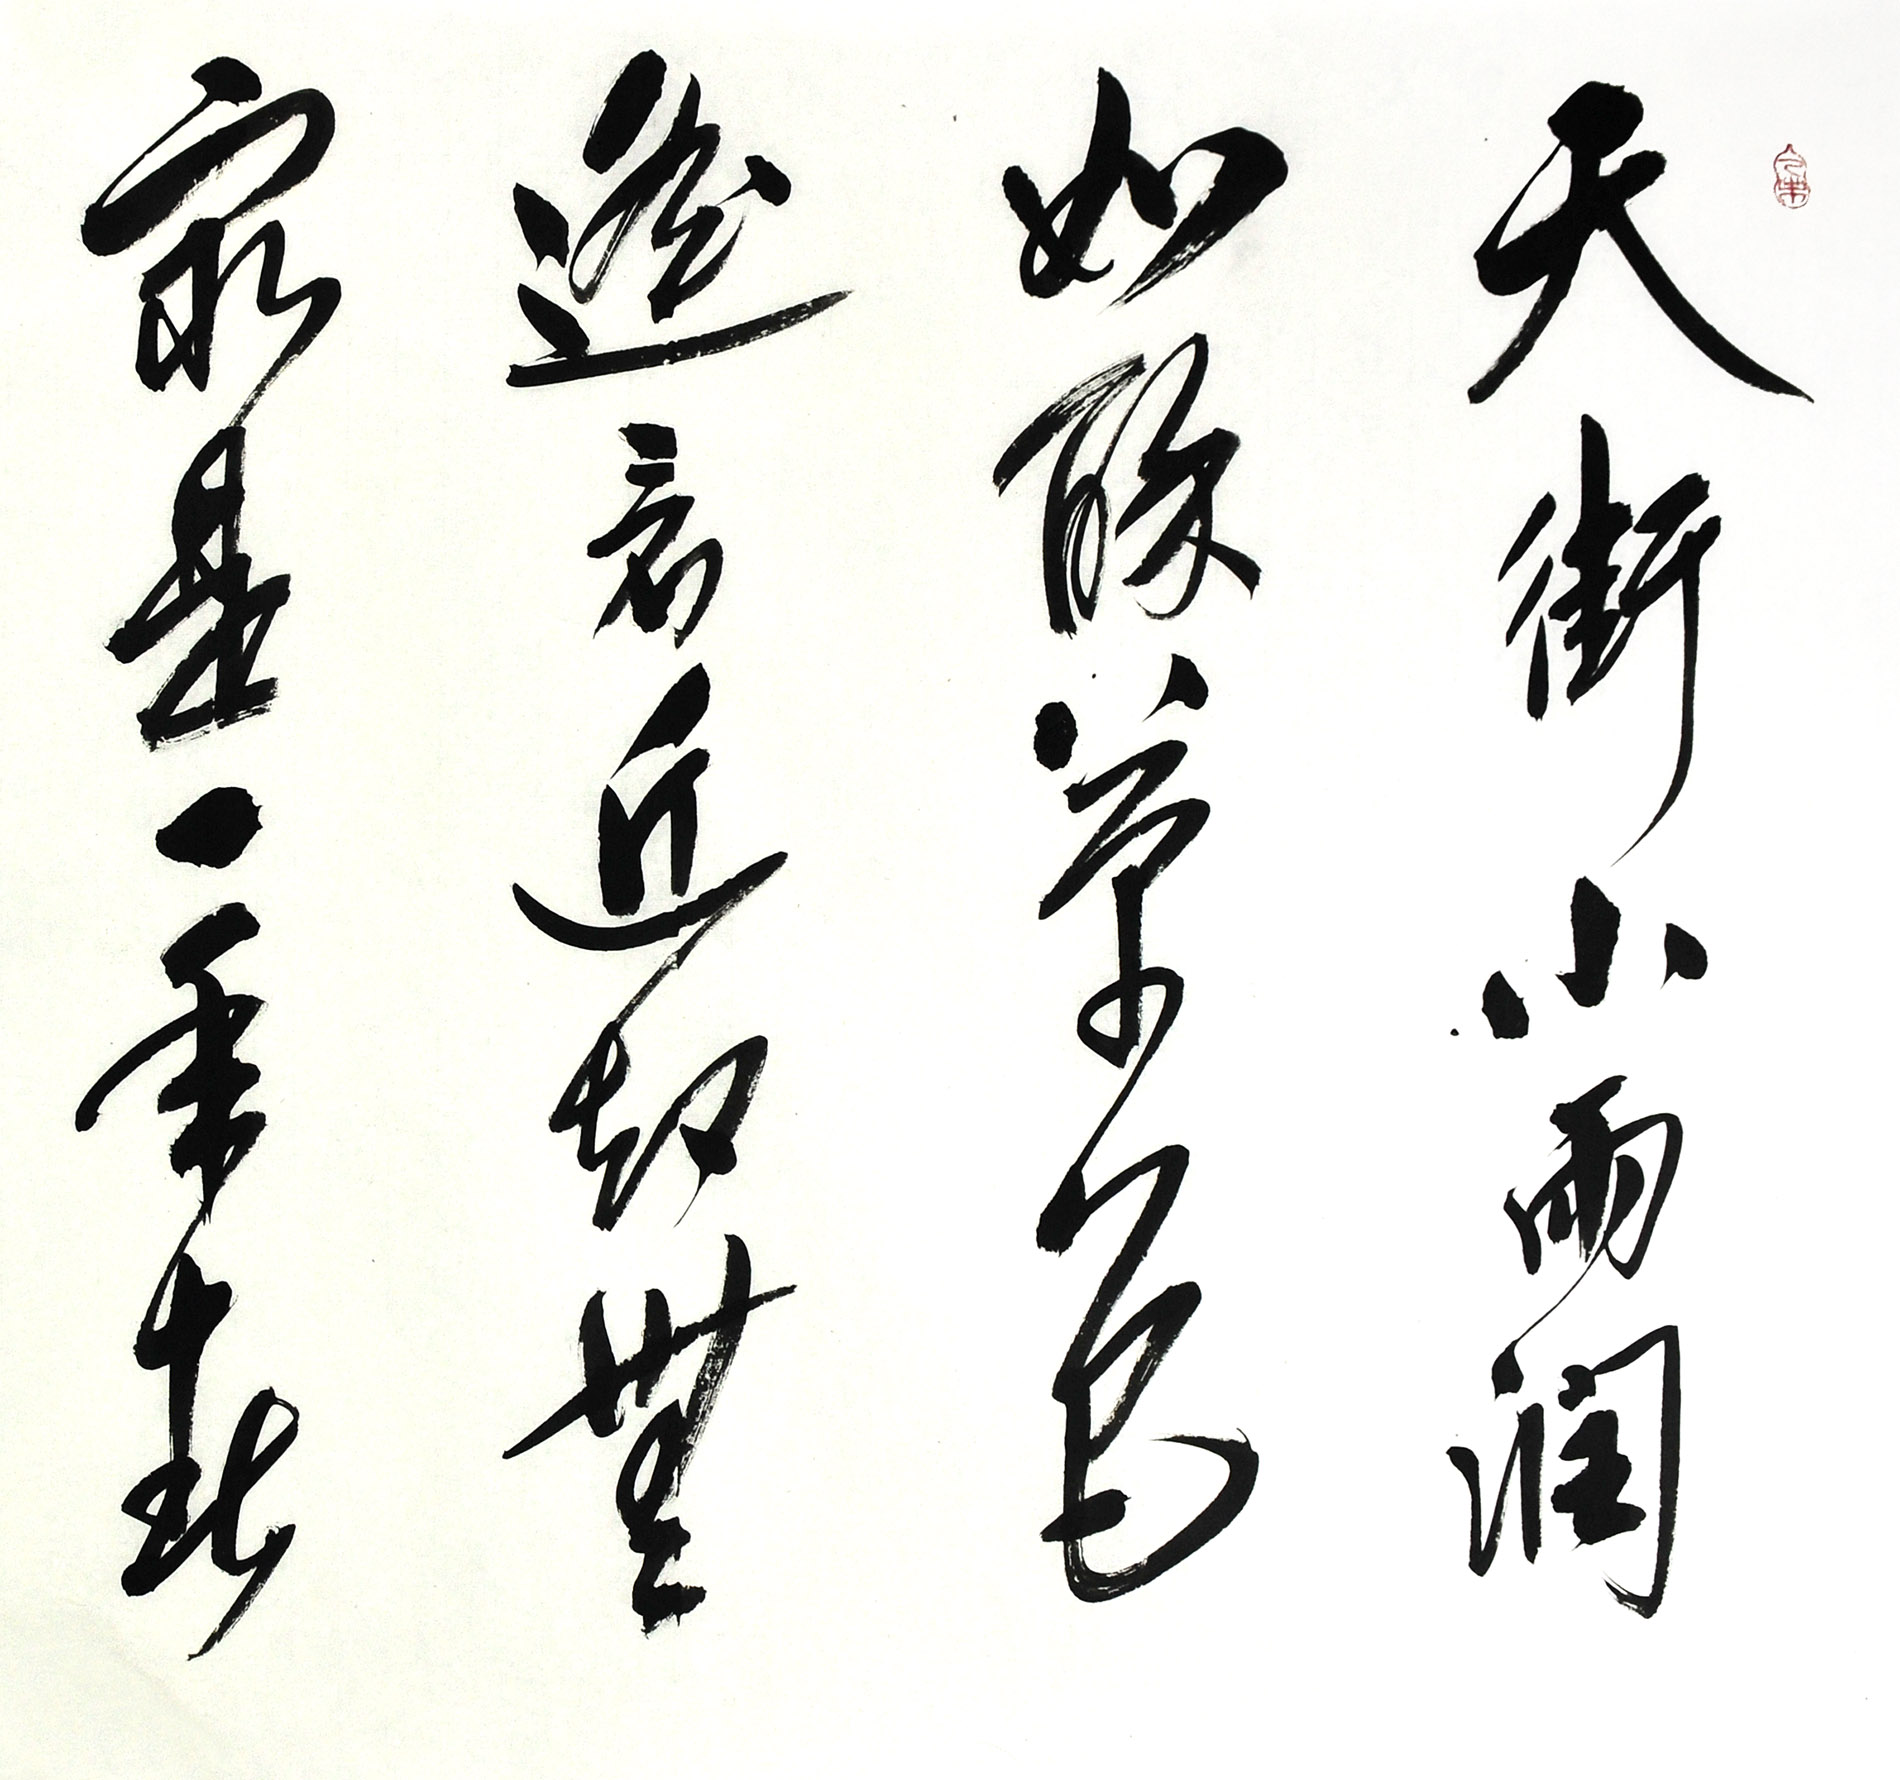 天街小雨潤
如酥草色
遥看近却無
最是一年春